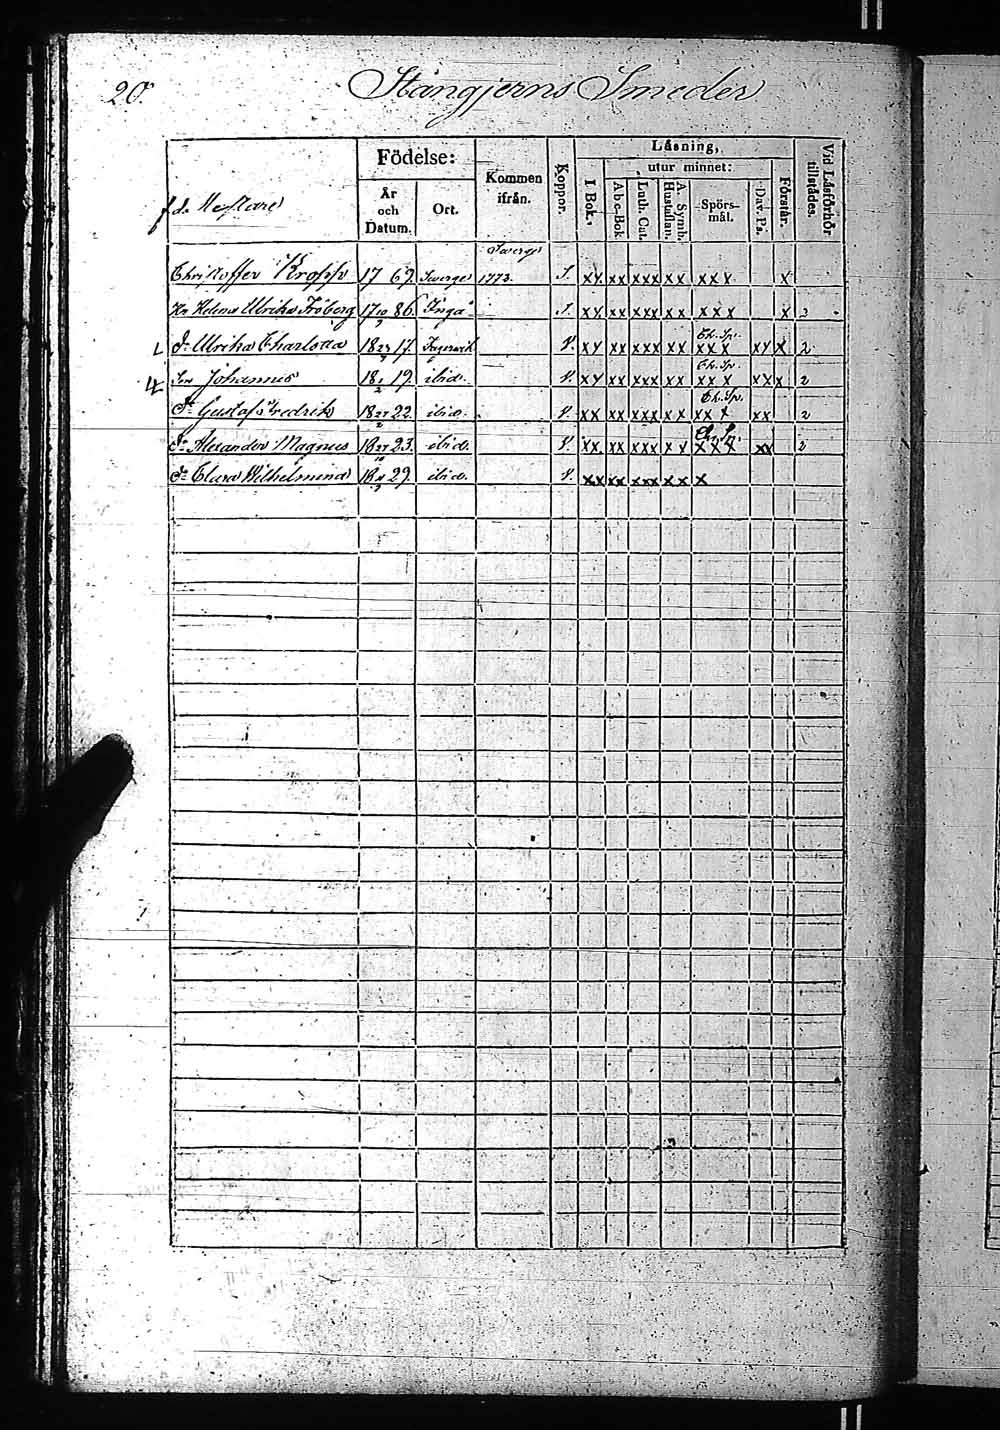 20.
Stångjerns Smeder
Födelse:
År och Datum.
Ort.
Kommen ifrån.
Koppor.
Läsning,
utur minnet:
I Bok.
A b c-Bok.
Luth. Cat.
A. Symb. Hustaflan.
Spörs-mål.
Dav. Ps.
Förstår.
Vid Läsförhör tillstädes.
f.d. Mästare
Sverge
Christoffer 17 69. Sverge 1773. S. xx xx xxx xx xxx x
Hu Helena Ulrika Fröberg 17 10/9 86. Ingå S. xx xx xxx xx xxx x 2
Dr Ulrika Charlotta 18 17. Fagervik V. xx xx xxx xx Ch. Sp. xxx xx x 2
4 Son Johannes 18 19 ibid. V. xx xx xxx xx Ch. Sp. xxx xx x 2
Gustaf Fredrik 18 22. ibid. V. xx xx xxx xx Ch. Sp. xxx xx 2
Alexander Magnus 18 23. ibid. V. xx xx xxx xx Ch. Sp. xxx xx 2
Dr Clara Wilhelmina 18 29. ibid. V. xx xx xxx xx x